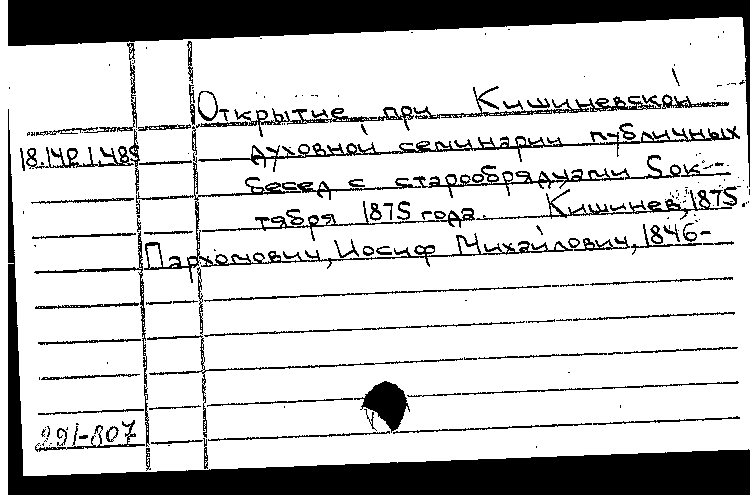 Открытие при Кишиневской
18.142.1.485
духовной семинарии публичных
бесед с старообрядчами 5 ок-
тября 1875 года. Кишинев, 1875.
Пархомович, Иосиф Михайлович, 1846-
291-807